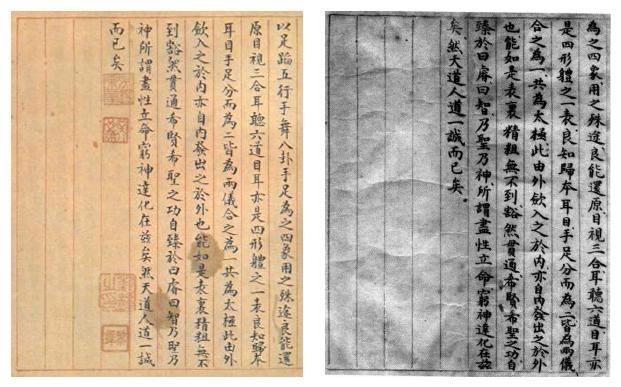 以足蹈五行手舞八卦手足為之四象用之殊途良能還
原目視三合耳聽六道目耳亦是四形體之一表良知歸本
耳目手足分而為二皆為兩儀合之為一共為太極此由外
歛入之於內亦自內發出之於外也能如是表裏精粗無不
到豁然貫通希賢希聖之功自臻於曰睿曰智乃聖乃
神所謂盡性立命窮神達化在茲矣然天道人道一誠
而已矣
為之四象用之殊途良能還原目視三合耳聽六道目耳亦
是四形體之一表良知歸本耳目手足分而為二皆為兩儀
合之為一共為太極此由外歛入之於內亦自內發出之於外
也能如是表裏精粗無不到豁然貫通希賢希聖之功自
臻於曰睿曰智乃聖乃神所謂盡性立命窮神達化在茲
矣然天道人道一誠而已矣